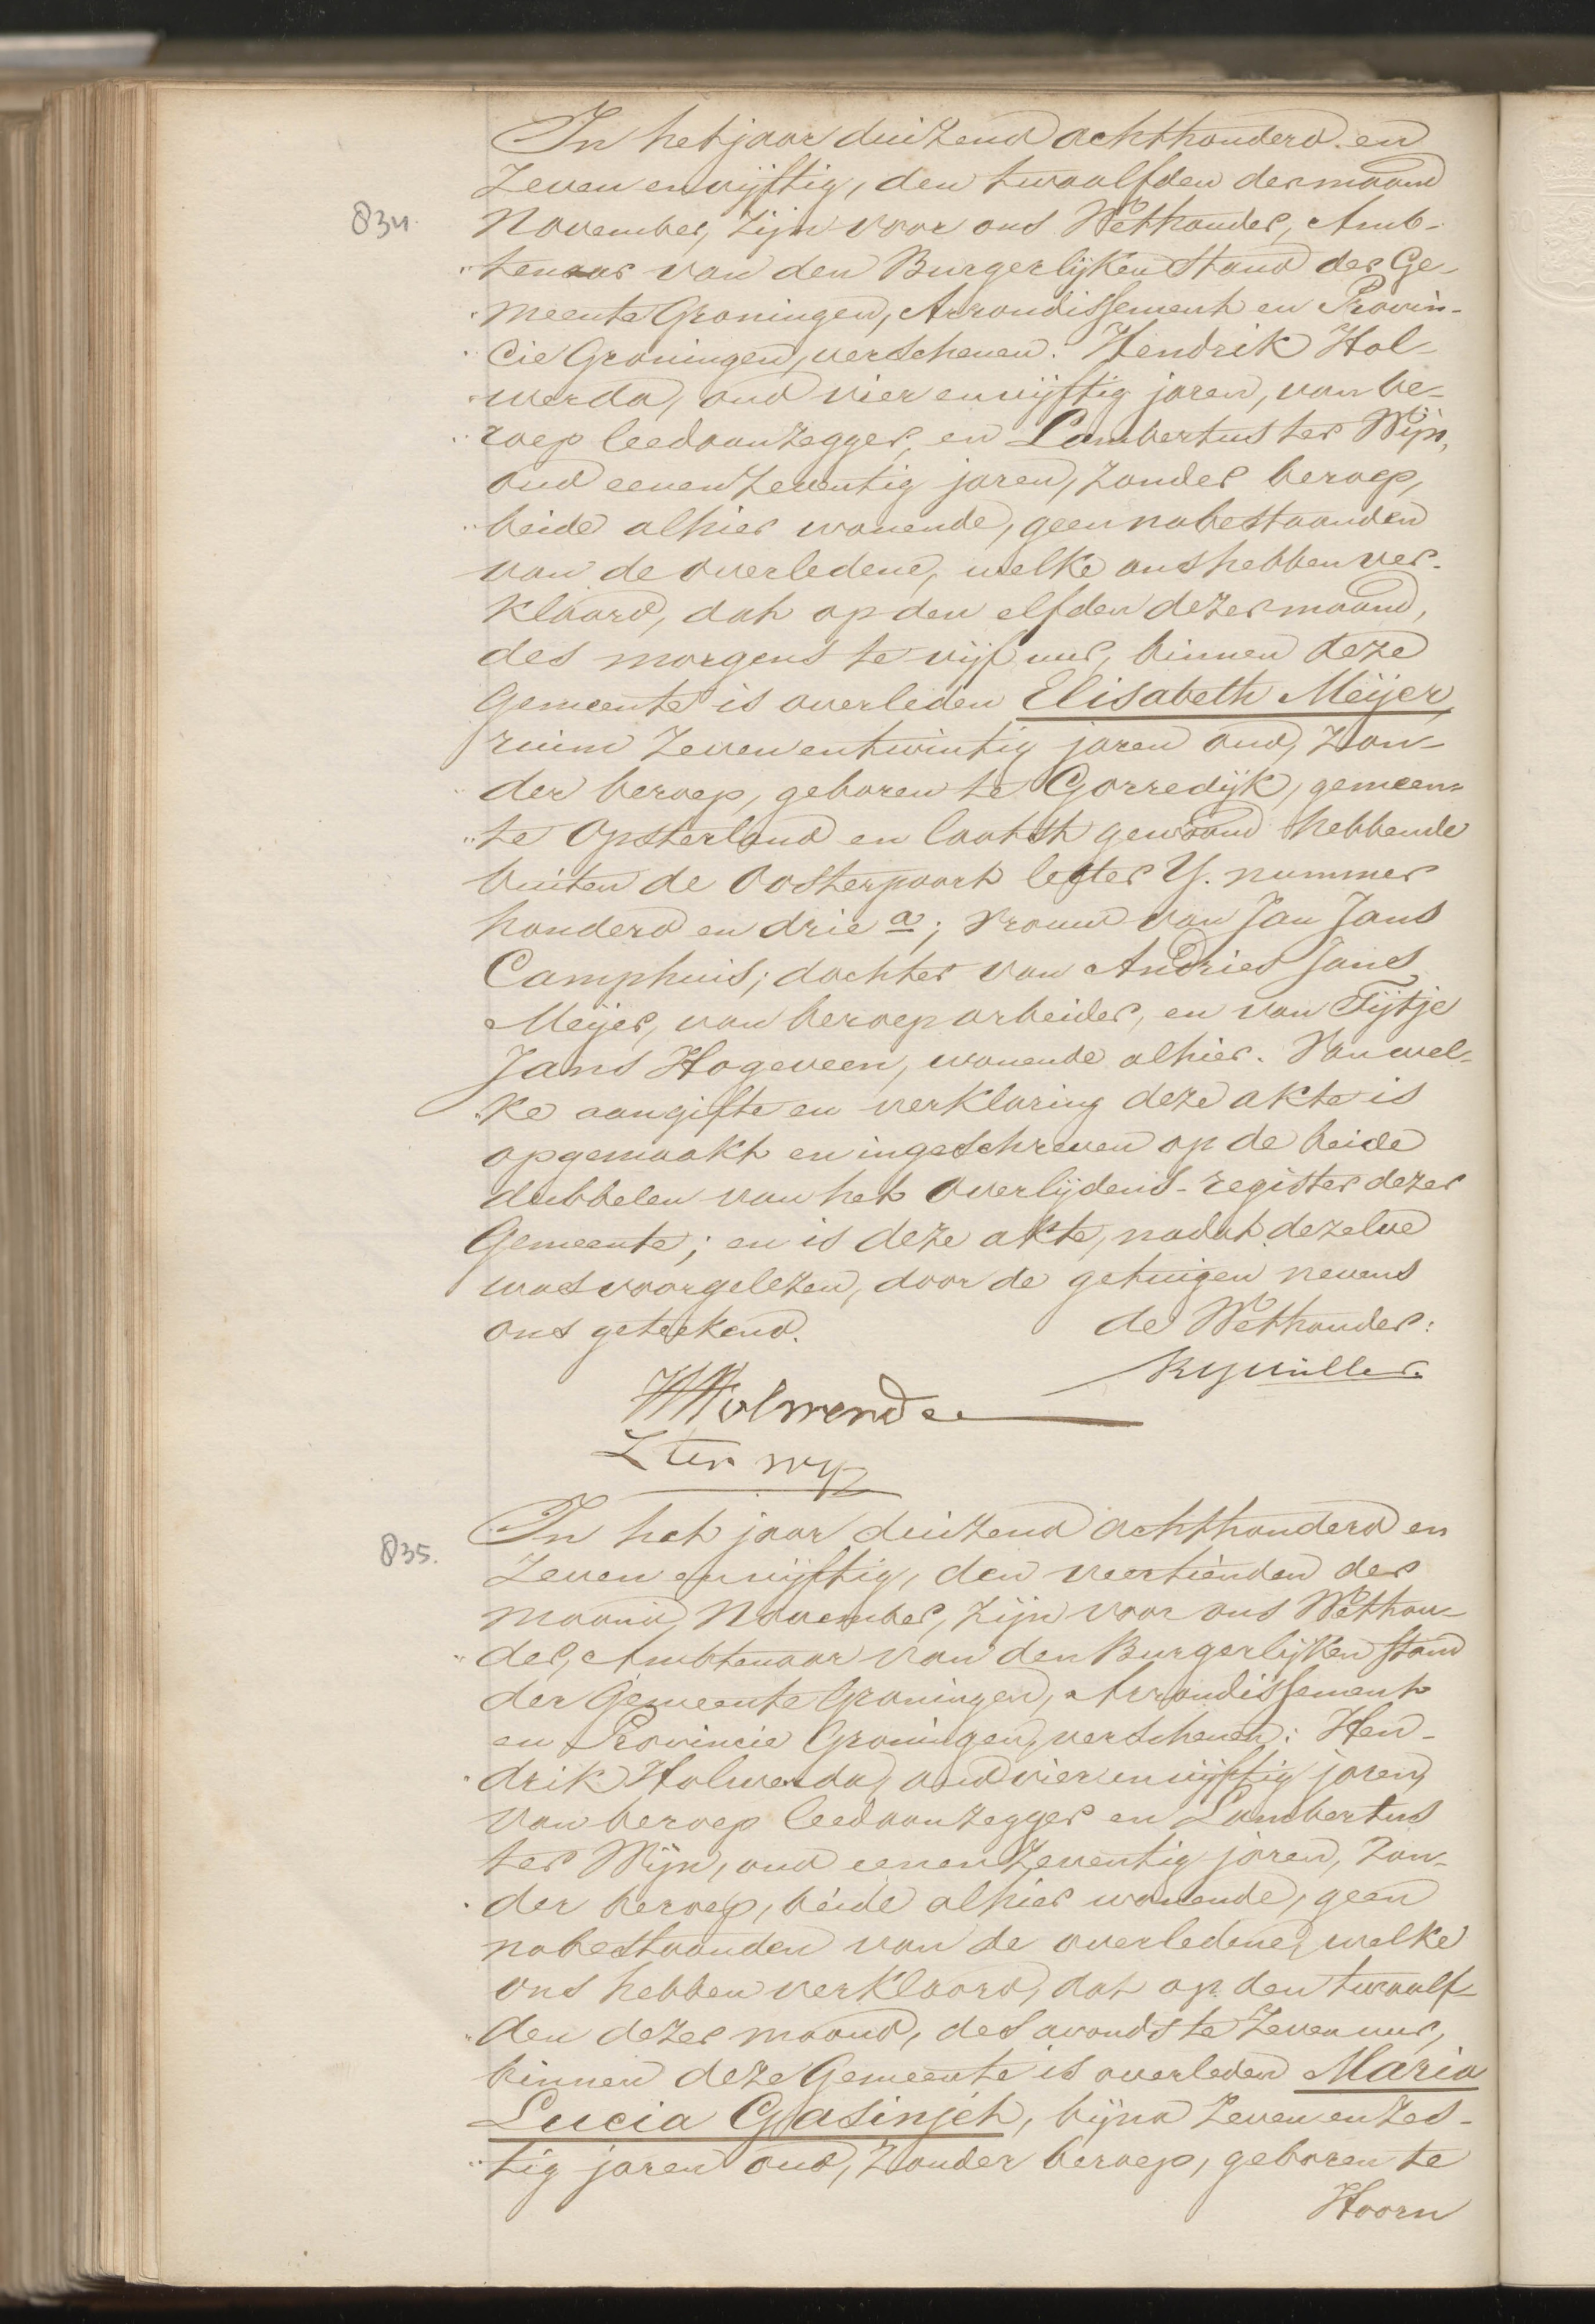 In het jaar duizend achthonderd en
zeven en vijftig, den twaalfden der maand
834.
November, zijn voor ons Wethouder, Amb-
"tenaar van den Burgerlijken Stand der Ge-
"meente Groningen, Arrondissement en Provin-
"cie Groningen, verschenen: Hendrik Hol-
"werda, oud vier en vijftig jaren, van be-
"roep leedaanzegger, en Lambertus ter Wijn,
oud eenenzeventig jaren, zonder beroep,
"beide alhier wonende, geen nabestaanden
van de overledene, welke ons hebben ver-
klaard, dat op den elfden dezer maand,
des morgens te vijf uur, binnen deze
Gemeente is overleden Elisabeth Meijer,
ruim zevenentwintig jaren oud, zon-
der beroep, geboren te Gorredijk, gemeen-
"te Opsterland en laatst gewoond hebbende
buiten de Oosterpoort letter Y. nummer
honderd en drie a; Vrouw van Jan Jans
Camphuis; dochter van Andries Jans
Meijer, van beroep arbeider, en van Tijtje
Jans Hogeveen, wonende alhier. Van wel-
"ke aangifte en verklaring deze akte is
opgemaakt en ingeschreven op de beide
dubbelen van het Overlijdens-register dezer
Gemeente; en is deze akte, nadat dezelve
was voorgelezen, door de getuigen nevens
ons geteekend. de Wethouder:
HHolwerda
L ter Wijn
In het jaar duizend achthonderd en
835.
zeven en vijftig, den veertienden der
maand November, zijn voor ons Wethou-
"der, Ambtenaar van den Burgerlijken Stand
der Gemeente Groningen, Arrondissement
en Provincie Groningen, verschenen: Hen-
"drik Holwerda, oud vier en vijftig jaren,
van beroep leedaanzegger en Lambertus
ter Wijn, oud eenenzeventig jaren, zon-
"der beroep, beide alhier wonende, geen
nabestaanden van de overledene, welke
ons hebben verklaard, dat op den twaalf-
"den dezer maand, des avonds te zeven uur,
binnen deze Gemeente is overleden Maria
Lucia Gasinjet, bijna zeven en zes-
"tig jaren oud, zonder beroep, geboren te
Hoorn